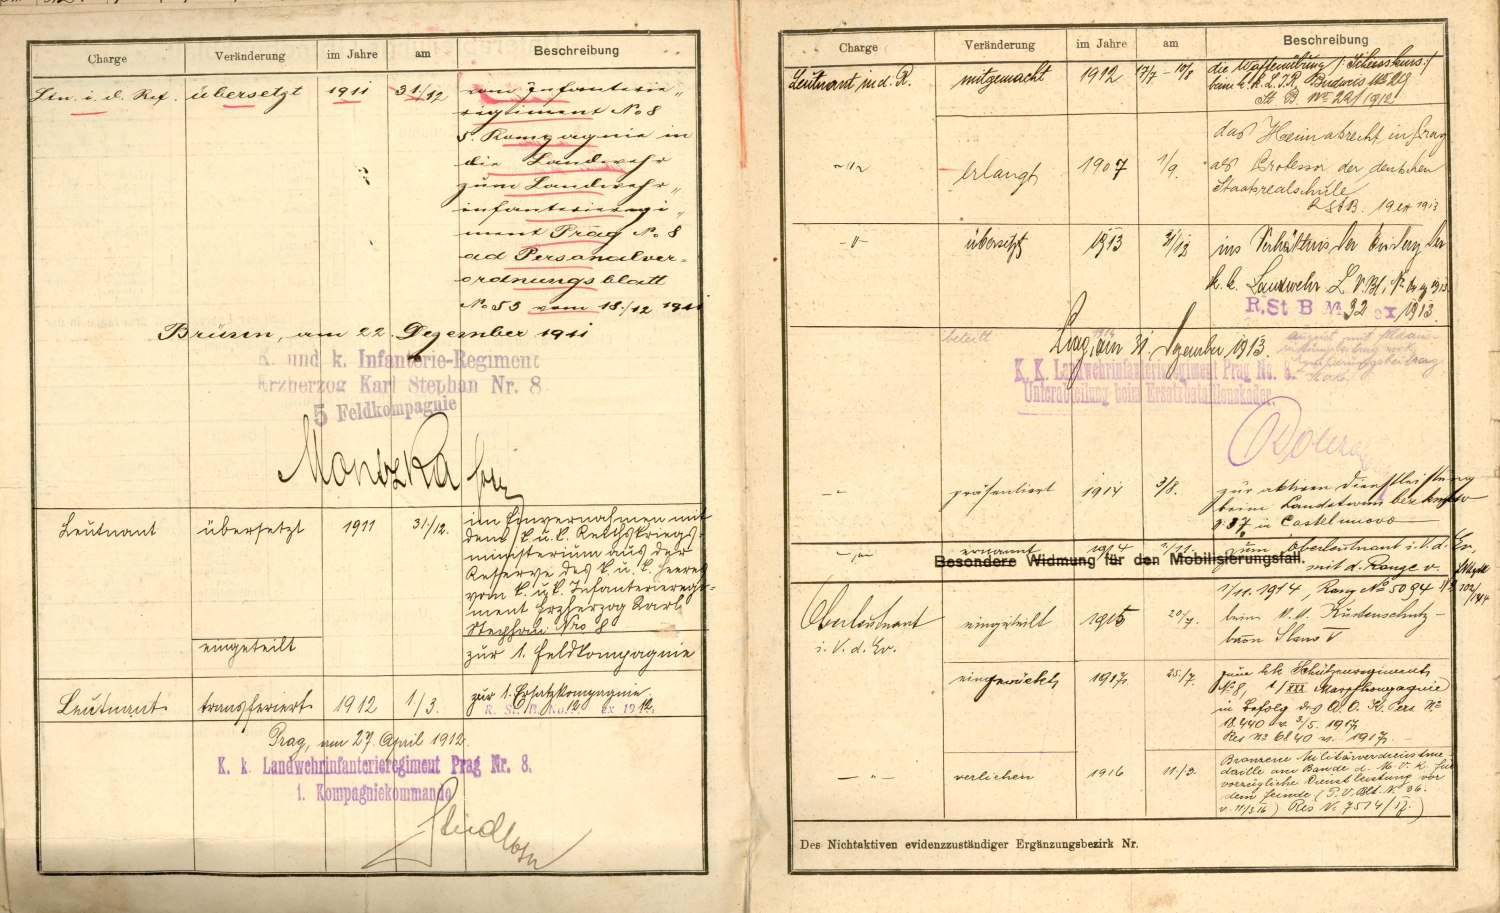 Charge Veränderung im Jahre am Beschreibung
Ltn. i. d. Res. übersetzt 1911 31./12 vom Infanterie„
regiment No 8
5. Kompagnie in
die Landwehr
zum Landwehr„
infanterieregi„
ment Prag No 8
ad Personalver-
ordnungsblatt
No 53 vom 18./12 1911
Brüsen, am 22. Dezember 1911
K. und k. Infanterie-Regiment
Erzherzog Karl Stephan Nr. 8
5 Feldkompagnie
Leutnant übersetzt 1911 31./12. im Einvernahmen mit
dem k. u. k. Reichskriegs-
ministerium aus der
Reserve des k. u. k. Heeres
vom k. u. k. Infanterieregi-
ment Erzherzog Karl
Stephan Nro 8
eingeteilt zur 1. Feldkompagnie
Leutnant transferiert 1912 1./3. zur 1. Ersatzkompagnie
R. St. B. No. 12 ex 1912.
Prag, am 27. April 1912.
K. k. Landwehrinfanterieregiment Prag Nr. 8.
1. Kompagniekommando
Charge Veränderung im Jahre am Beschreibung
Leutnant in d. R. mitgemacht 1912 17/7 - 17/8 die Waffenübung / Schiesskurs /
beim k. k. L. I. R. Budweis No 29
St. B. No 221/1912
-"- erlangt 1907 1/9. das Heimatsrecht in Prag
als Professor der deutschen
Staatsrealschule
R St B. 19 ex 1913
-"- übersetzt 1913 31/12 ins Verhältnis der Evidenz der
k. k. Landwehr L. V. Bl. Nr
R. St B No 92 ex 1913.
Prag, am 31. Dezember 1913.
1914
K. K. Landwehrinfanterieregiment Prag No. 8.
Unterabteilung beim Ersatzbataillonskader.
-"- präsentiert 1914 3/8. zur aktiven Dienstleistung
beim Landsturmbezirkskmdo
No 37 in Castelnuovo
-"- ernannt 1914 1/11. zum Oberleutnant i. V. d. Ev.
mit d. Range v.
Besondere Widmung für den Mobilisierungsfall.
1/11. 1914, Rang No 5094
Oberleutnant eingeteilt 1915 20/7. beim k. k. Küstenschutz-
i. V. d. Ev. baon Slano V
eingerückt 1917. 25./7. zum k.k. Schützenregiment
No 8, 1/XXX Marschkompagnie
in Befolg des A. O. K. Pers. No
18.440 v. 3/5. 1917
Res No 6840 v. 1917.
-"- verliehen 1916 11./3. Bronzene Militärverdienstme-
daille am Bande d. M. V. K. für
vorzügliche Dienstleistung vor
dem Feinde (P. V. Blt. No 36.
v. 11/3. 16) Res No 7514/II.)
Des Nichtaktiven evidenzzuständiger Ergänzungsbezirk Nr.